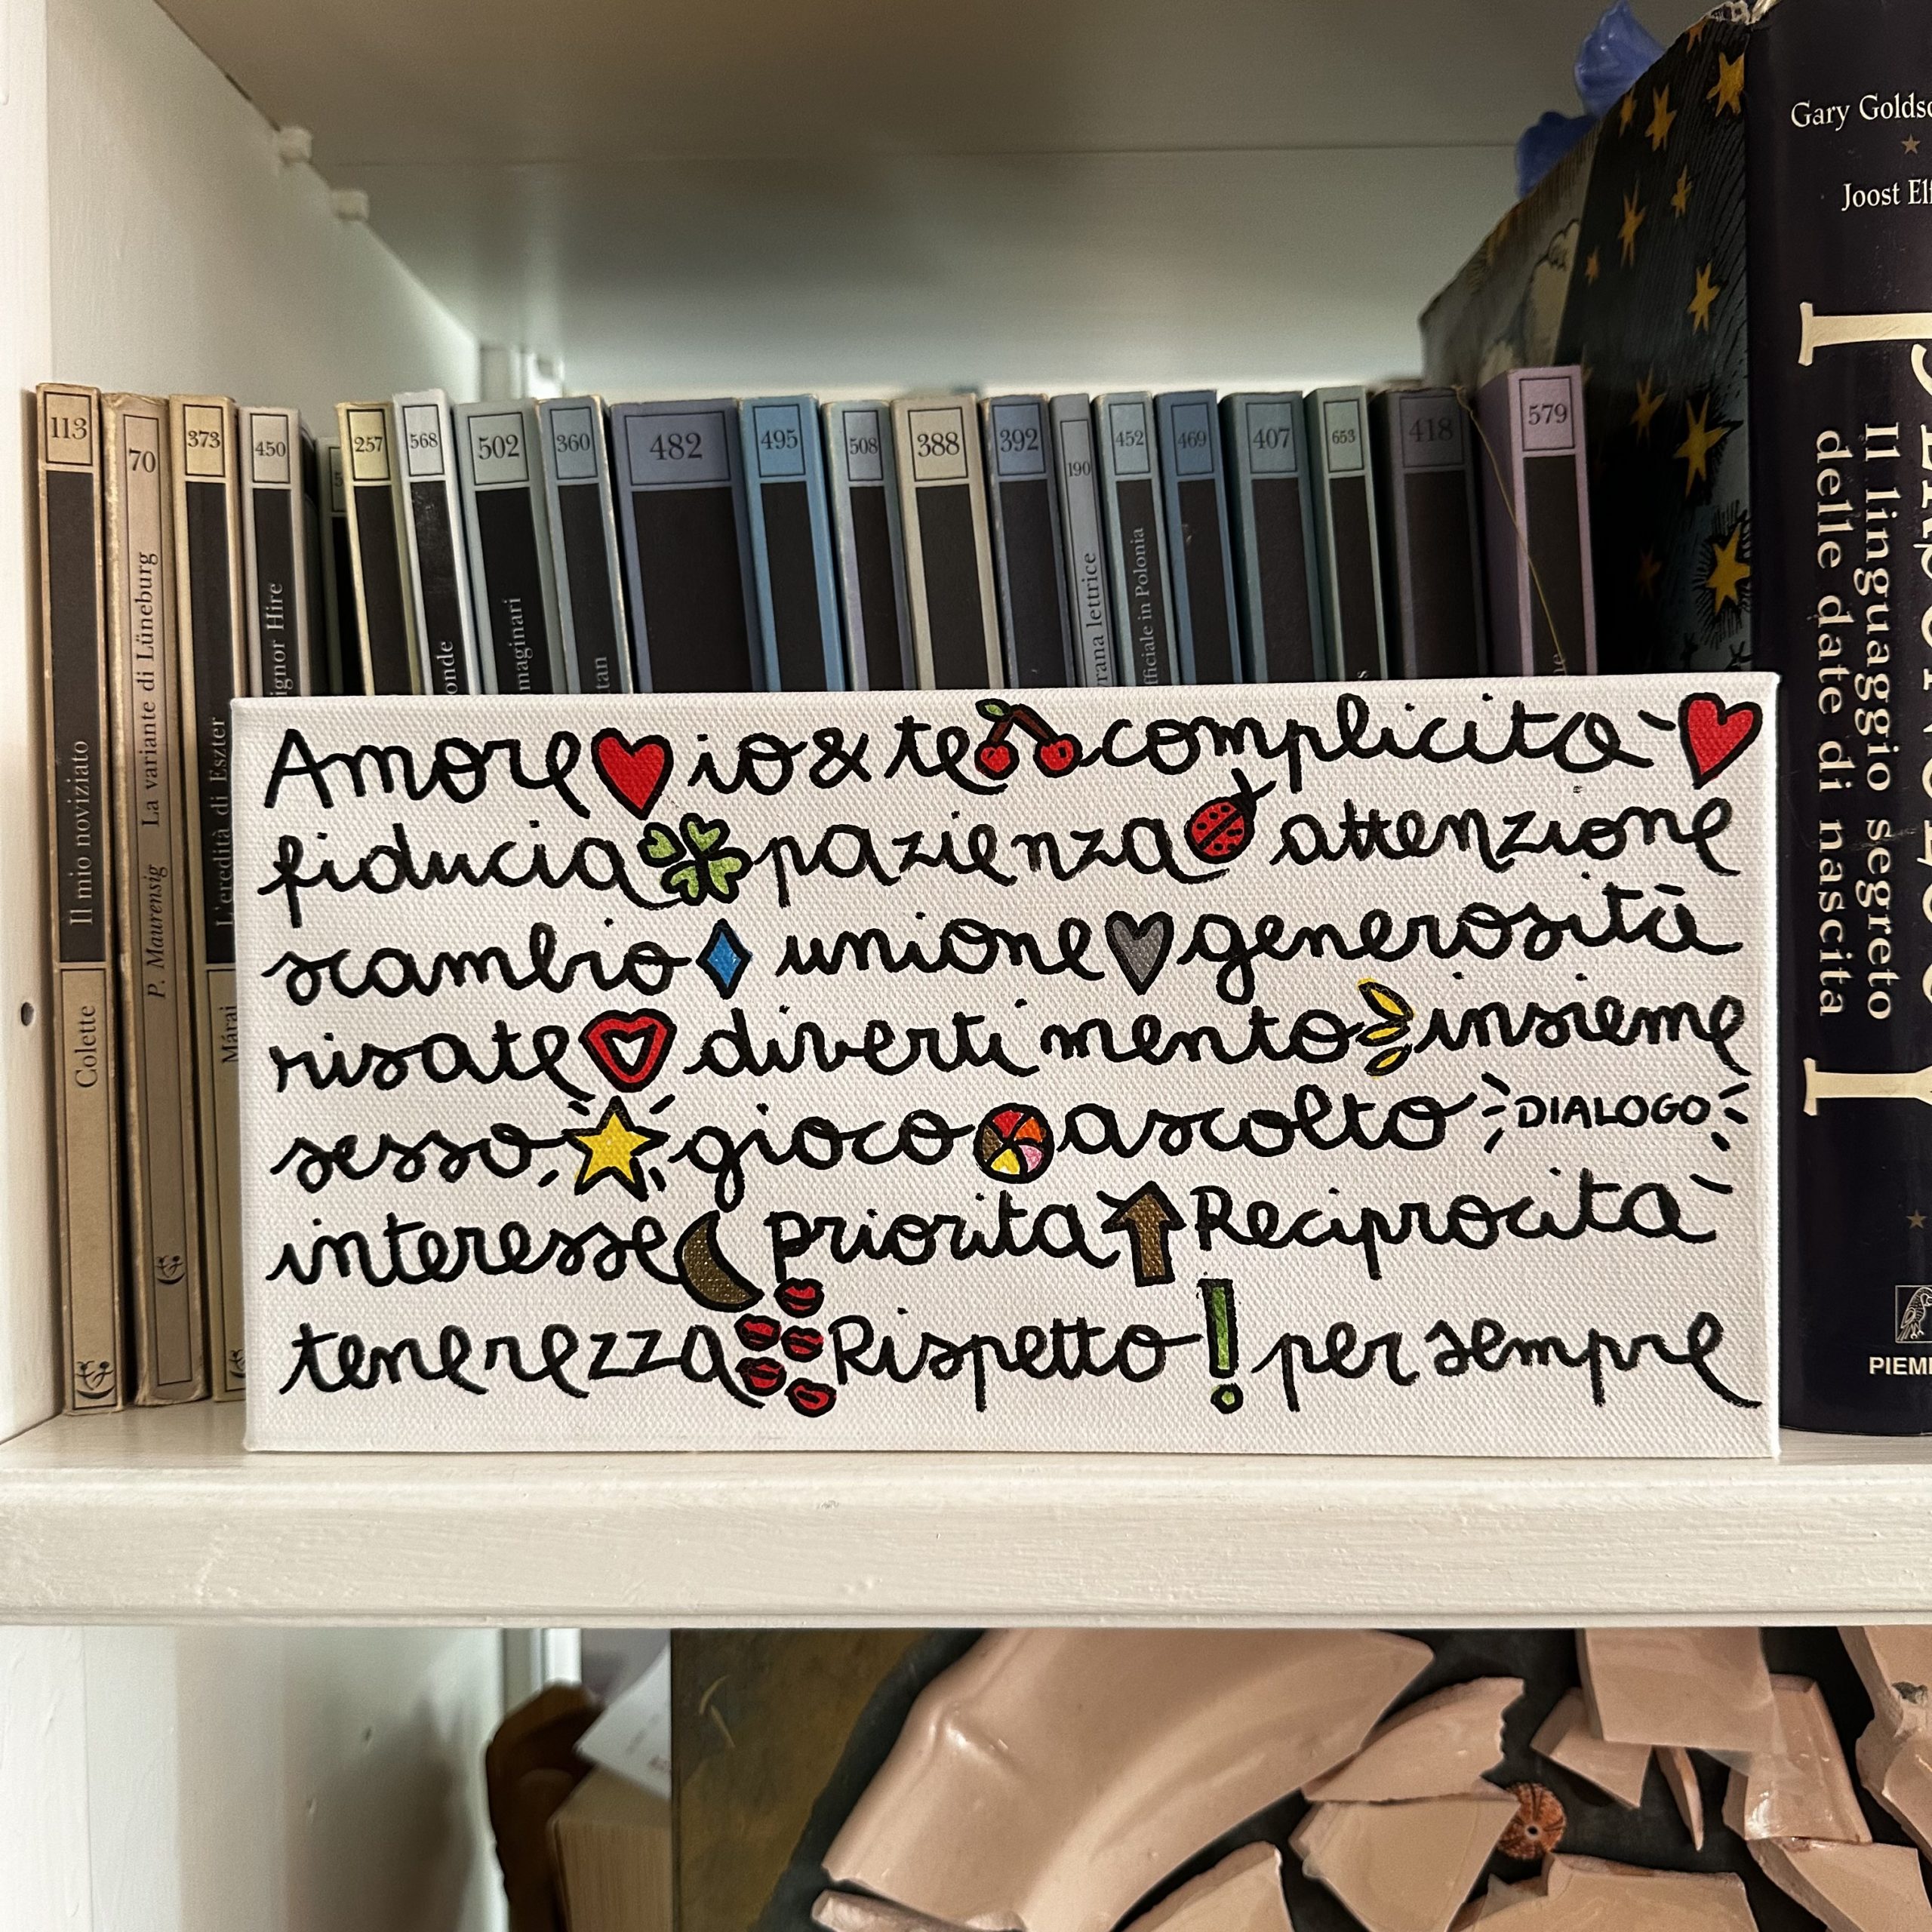 113
70
373
450
257
568
502
360
482
495
508
388
392
190
452
469
407
653
418
579
Il mio noviziato
Colette
P. Maurensig La variante di Lüneburg
L'eredità di Eszter
Márai
ignor Hire
onde
maginari
tan
vrana lettrice
fficiale in Polonia
Gary Goldsc
Joost Elf
Il linguaggio segreto
delle date di nascita
PIEM
Amore io & te complicità
fiducia pazienza attenzione
scambio unione generosità
risate divertimento insieme
sesso gioco ascolto DIALOGO
interesse priorita Reciprocità
tenerezza Rispetto ! per sempre